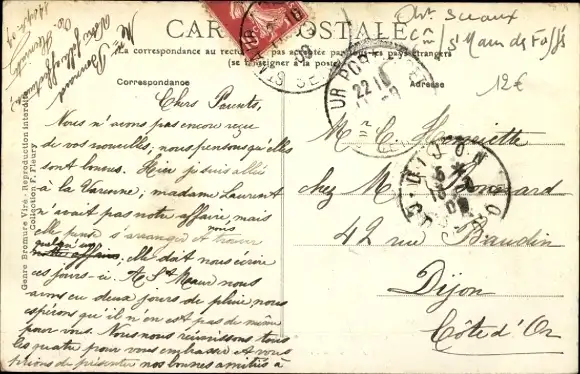 CARTE POSTALE
La correspondance au recto n'est pas acceptée par tous les pays étrangers
(se renseigner à la poste)
Correspondance
Adresse
Genre Bromure Viré - Reproduction interdite
Collection F. Fleury
Chers Parents,
Nous n'avons pas encore reçu
de vos nouvelles, nous pensons qu'elles
sont bonnes. Hier je suis allée
à la Varenne; madame Laurent
n'avait pas notre affaire, mais
elle pense s'arranger et trouver
nous
elle doit nous écrire
ces jours-ci. A St Maur nous
avons eu deux jours de pluie, nous
espérons qu'il n'en est pas de même
pour vous. Nous nous réunissons tous
les quatre pour vous embrasser et vous
prions de présenter nos bonnes amitiés à
M. C. Henriette
chez M.
42 rue Baudin
Dijon
Côte d'Or
DIJON
12€